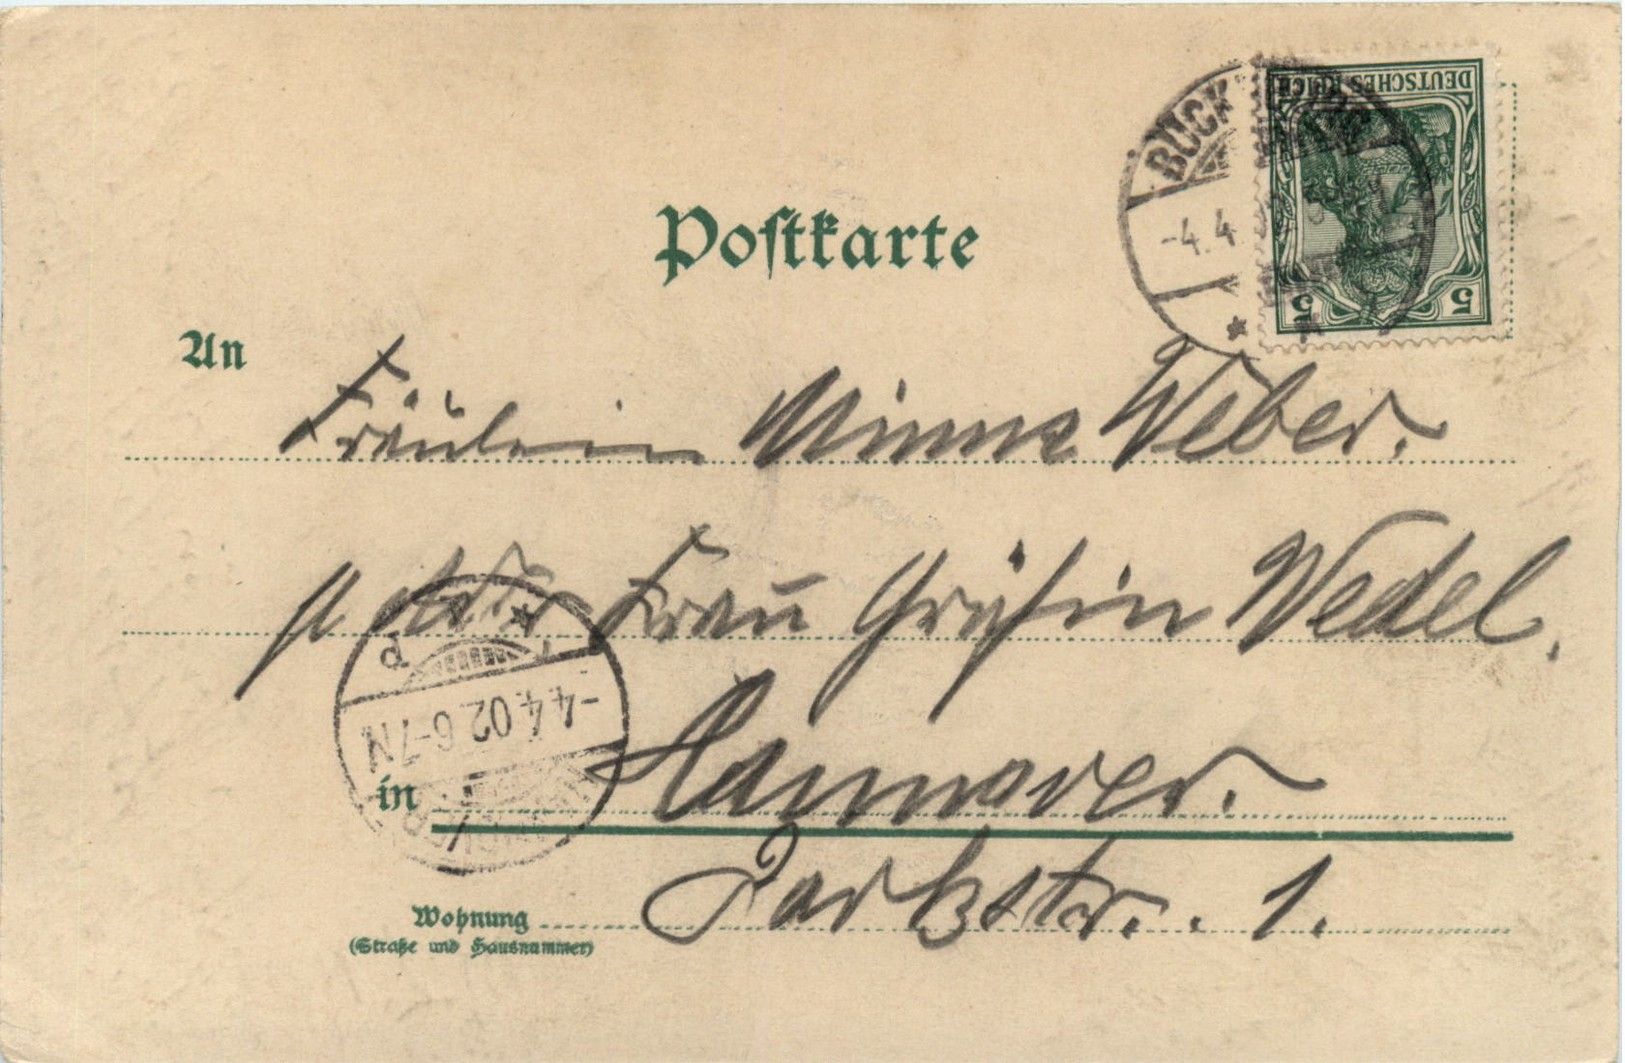 Postkarte
DEUTSCHES REICH
5 5
BÜCK
-4.4.
An Fräulein Minna Weber.
p. Adr. Frau Gräfin Wedel.
-4.4.02.6-7N
in Hannover.
Parkstr. . 1.
Wohnung
(Straße und Hausnummer)